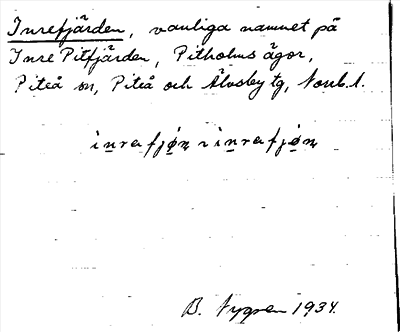 Inrefjärden, vanliga namnet på
Inre Pitfjärden, Pitholms ägor,
Piteå sn, Piteå och Älvsby tg, Norrb. l.
inrafjøn ı inrafjøn
B. Nygren 1934.